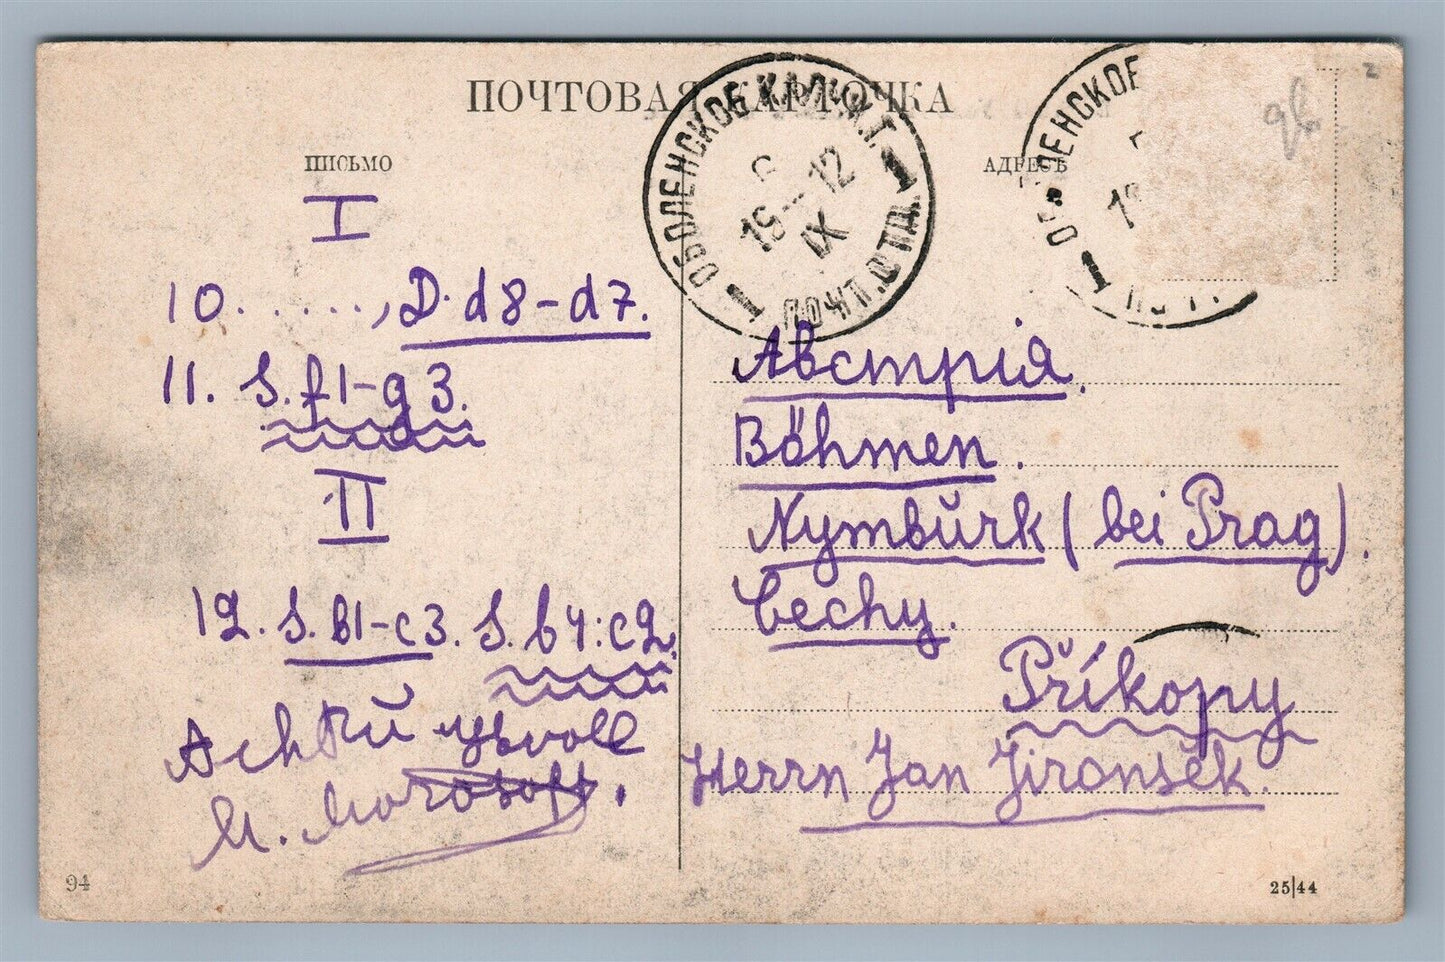 ПОЧТОВАЯ КАРТОЧКА
ПИСЬМО
АДРЕСЪ
ОБОЛЕНСКОЕ КАЛУЖ.Г.
19 12
IX
ПОЧТ. ОТД.
ОБОЛЕНСКОЕ
I
10. . . . . . , D. d8-d7.
11. S. f1-g3.
II
12. S. b1-c3. S. b4:c2.
Achtŭngsvoll
M. Morosoff.
Австрія.
Böhmen.
Nymbŭrk (bei Prag).
Čechy.
Příkopy
Herrn Jan Jironšek.
94
25|44